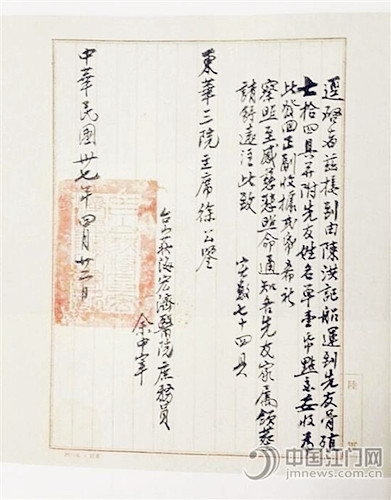 逕啓者茲接到由陳洪記船運到先友骨殖
七拾四具并附先友姓名單壹帋點交妥收為
此發回正副收據弍帋希祈
察照至感懇懇照命通知各先友家屬領葬
請舒遠注此致
實數七十四具
東華三院主席徐公鑒
台山荻海宏濟醫院庶務員
余中
中華民國卅七年四月廿二日
陸
中国江门网